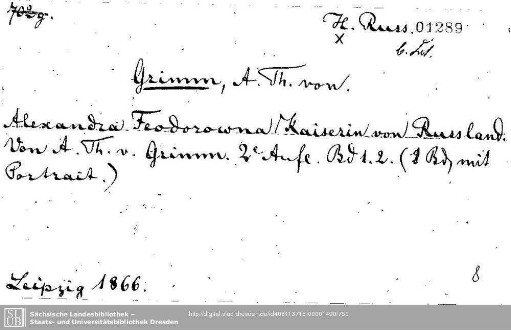 702g. H. Russ. 01289
x
Grimm, A. Th. von.
Alexandra Feodorowna / Kaiserin von Russland.
Von A. Th. v. Grimm. 2e Aufl. Bd 1.2. (2 Bd, mit
Portrait.)
Leipzig 1866. 8
Sächsische Landesbibliothek –
Staats- und Universitätsbibliothek Dresden